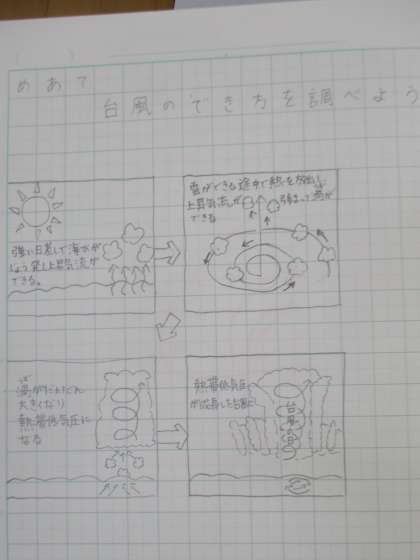 めあて
台風のでき方を調べよう
強い日差しで海水が
じょう発し上昇気流が
できる。
雲ができる途中で熱を放出し
上昇気流が強まって渦が
できる
渦がだんだん
大きくなり
熱帯低気圧に
なる
熱帯低気圧
が成長し台風に
台風の目